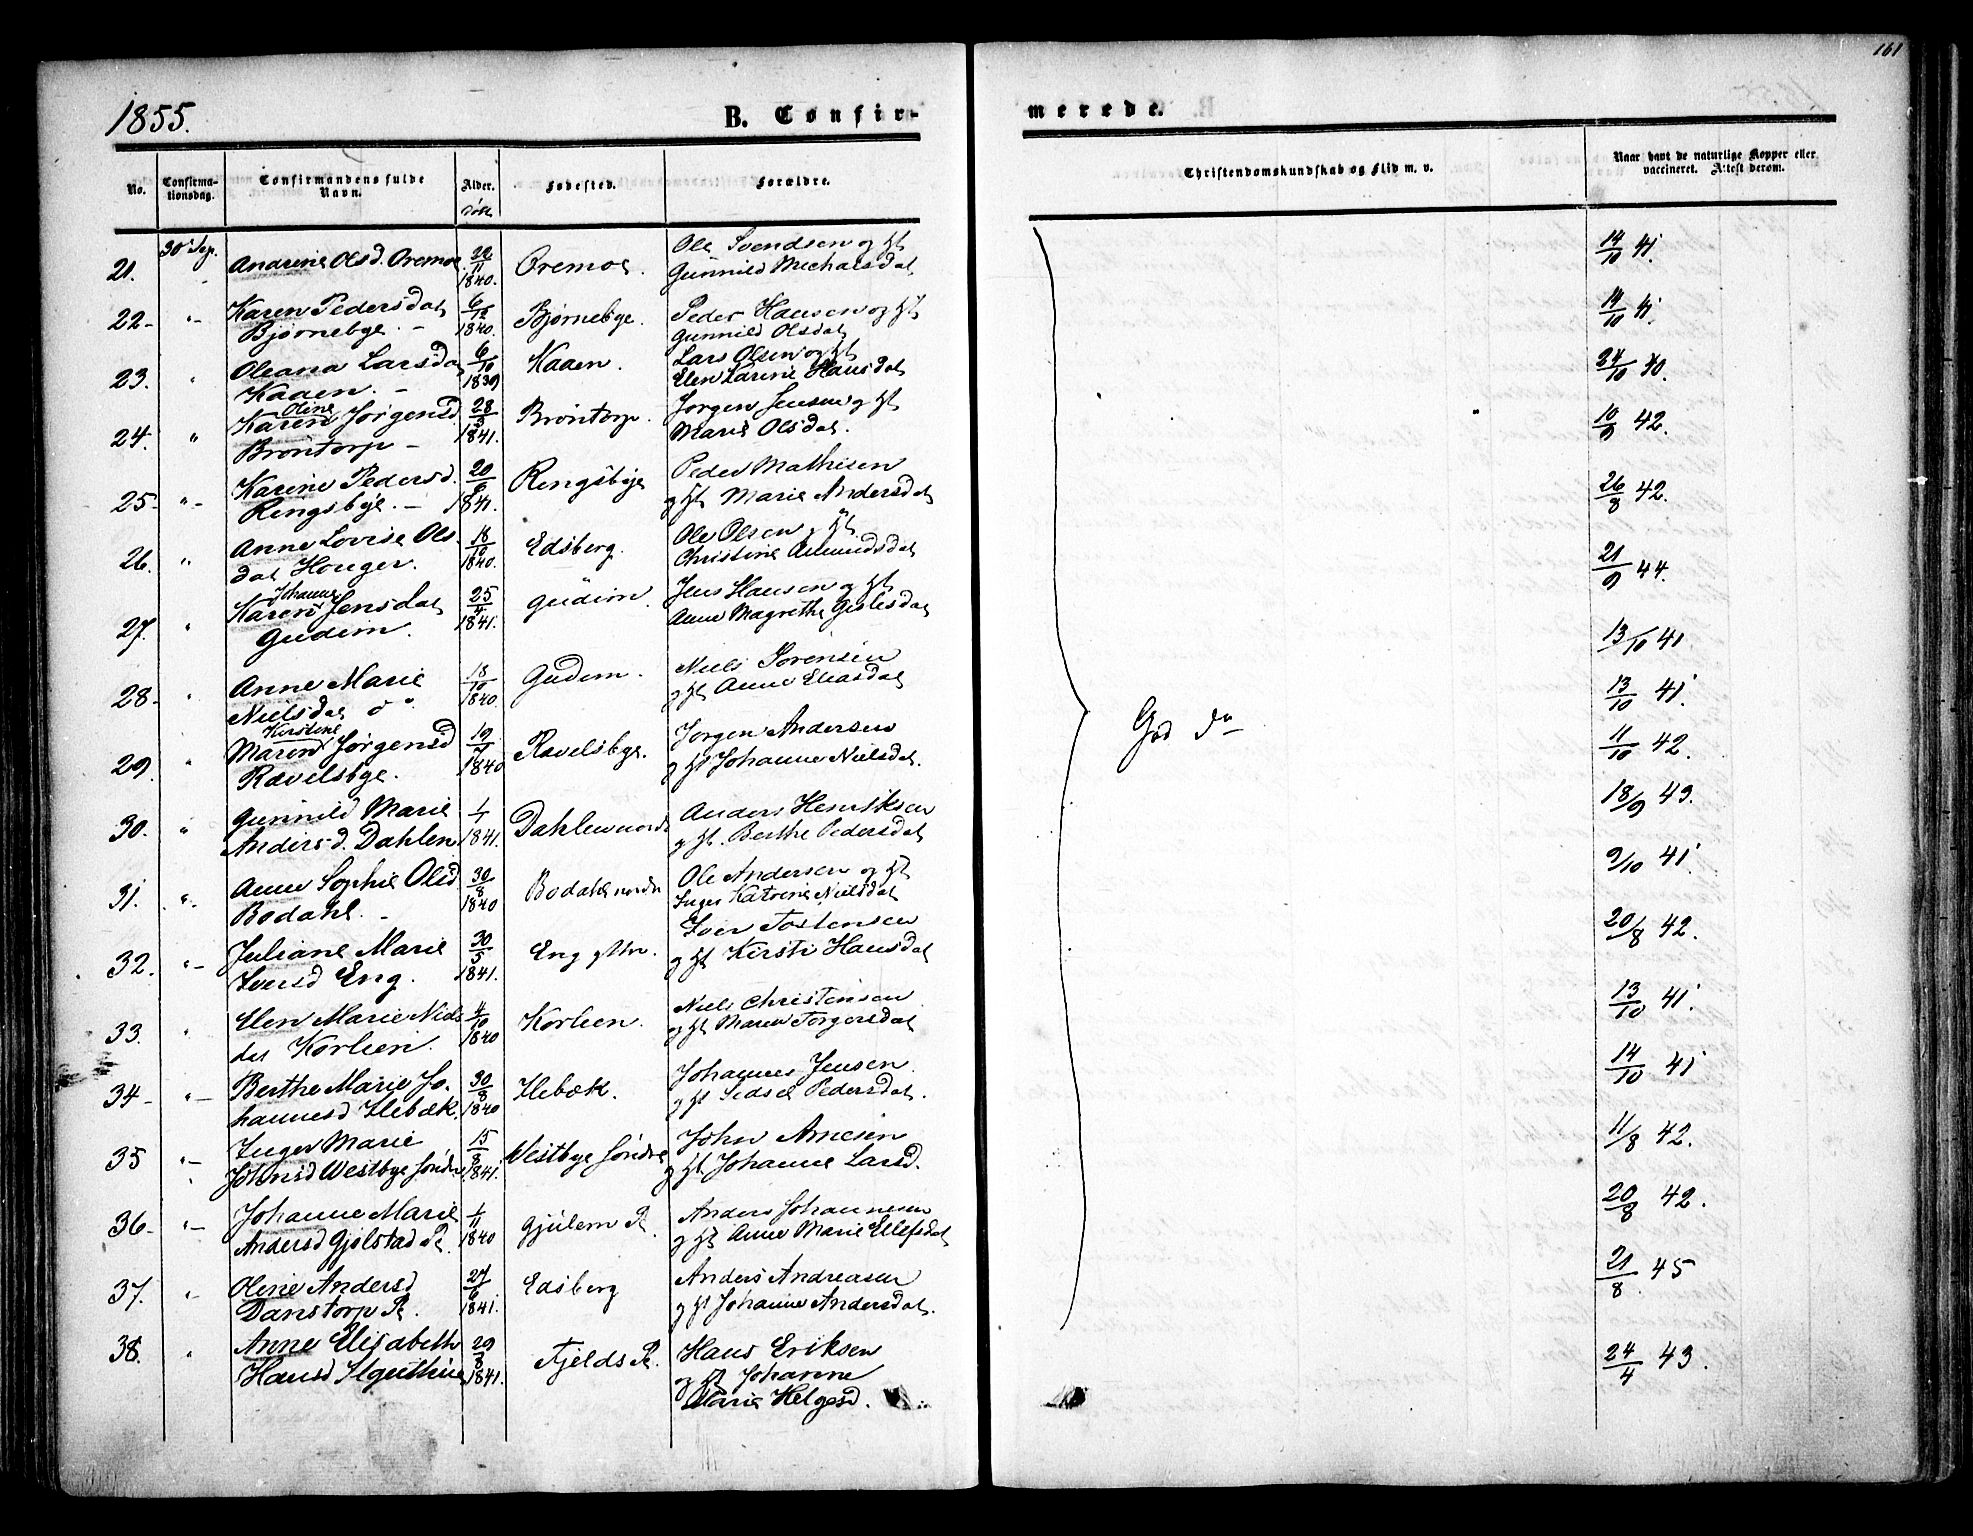 161
1855.
B. Confir-
merede.
No.
Confirma-
tionsdag.
Confirmandens fulde
Navn.
Alder.
Fødested.
Forældre.
Christendomskundskab og Flid m. v.
Naar havt de naturlige Kopper eller
vaccineret. Attest derom.
30 Sep.
21. Andrine Olsd. Oremoe 22/11 1840. Oremoe.
Ole Svendsen og Hst
Gunnild Michaelsdat
14/10 41.
22 - Karen Pedersdat
Bjørnebye. - 6/12 1840. Bjørnebye.
Peder Hansen og Hst
Gunnild Olsdat
14/10 41.
23. Oleana Larsda
Kaaen. - 6/10 1839 Kaaen.
Lars Olsen og Hst
Elen Karine Hansdat
24/10 40.
24. Karen Oline Jørgensd
Brøntorp - 28/3 1841. Brøntorp.
Jørgen Jensen og Hst
Marie Olsdat.
10/9 42.
25 - Karine Pedersd.
Rengsbye. - 20/6 1841. Rengsbye
Peder Mathisen
og Hst Marie Andersdat
26/8 42.
26. Anne Lovise Ols
dat Houger. 18/10 1840. Edsberg.
Ole Olsen og Hst
Christine Amundsdat
21/9 44.
27. Karen Johanne Jensdat
Gudim. 25/4 1841. Gudim.
Jens Hansen og Hst
Anne Magrethe Gislesdat
13/10 41
28 - Anne Marie
Nielsdat 18/10 1840. Gudem.
Niels Sørensen
og Hst Anne Eliasdat
13/10 41.
29. Maren Kirstine Jørgensd
Rævelsbye. 19/7 1840 Rævelsbye.
Jørgen Andersen
og Hst Johanne Nielsdat.
11/10 42.
30. Gunnild Marie
Andersd. Dahlen 1/1 1841. Dahlen nordr
Anders Henriksen
og Hst. Berthe Pedersdat
18/9 43.
31. Anne Sophie Olsd
Bodahl. - 30/8 1840 Bodahl nordr
Ole Andersen og Hst
Inger Katrine Nielsdat
9/10 41.
32. Juliane Marie
Iversd Eng. 30/5 1841. Eng yttr.
Iver Tostensen
og Hst Kirsti Hansdat
20/8 42.
33. Elen Marie Niels
dat Korlien. 4/10 1840 Korlien.
Niels Christensen
og Hst Maren Torgersdat
13/10 41.
34 - Berthe Marie Jo-
hannesd Ilebæk. 30/8 1840 Ilebæk.
Johannes Jensen
og Hst Sedsel Pedersdat.
14/10 41
35 Inger Marie
Johnsd Westbye søndre 15/8 1841. Westbye søndre
John Arnesen
og Hst Johanne Larsd.
11/8 42.
36 - Johanne Marie
Andersd Gjølstad R. 1/11 1840 Gjulem R.
Anders Johannesen
og Hst Anne Marie Ellefsdat
20/8 42.
37. Oline Andersd
Danstorp R. 27/6 1841. Edsberg
Anders Andreasen
og Hst Johanne Andersdat.
21/8 45
38. Anne Elisabeth
Hansd 29/8 1841. Fjelds R.
Hans Eriksen
og Hst Johanne
Marie Helgesd.
24/4 43.
God